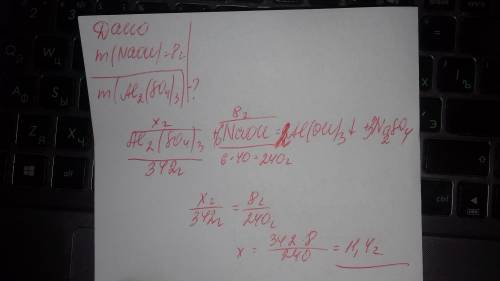 Дано
m(NaOH)=8г
m(Al2(SO4)3)-?
xг 8г
Al2(SO4)3 + 6NaOH = 2Al(OH)3↓ + 3Na2SO4
342г 6·40=240г
xг/342г = 8г/240г
x = 342·8/240 = 11,4г